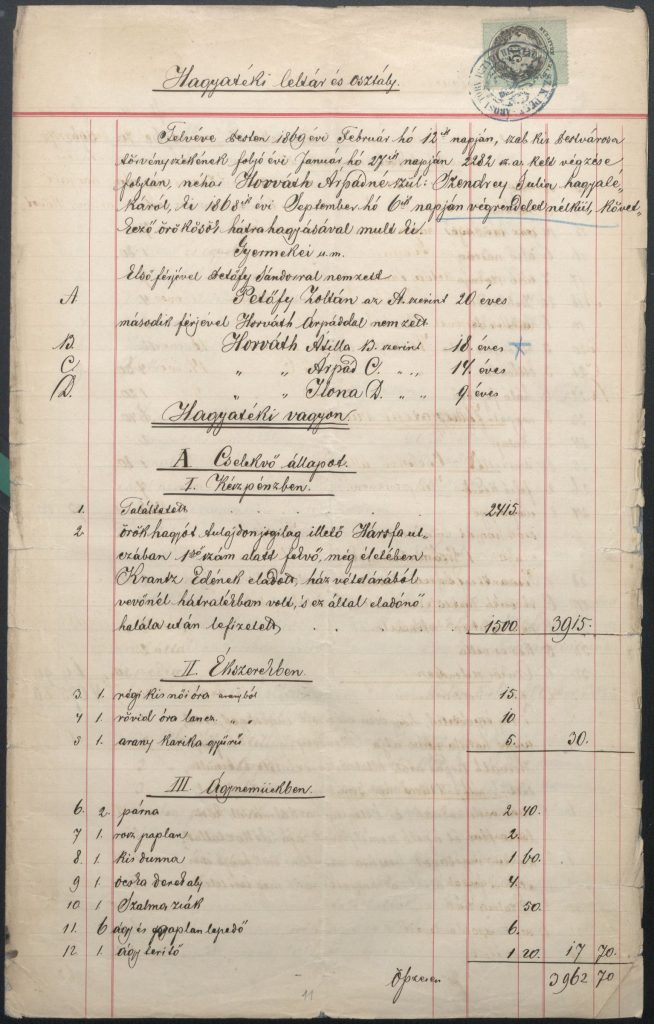 Hagyatéki leltár és osztály.
Felvéve Pesten 1869 évi Február hó 12én napján, szab. kir. Pestvárosa
törvényszékének folyó évi Január hó 27én napján 2282 sz. a. kelt végzése
folytán, néhai Horváth Árpádné szül: Szendrey Julia hagyaté-
káról, ki 1868ik évi September hó 6án napján végrendelet nélkül, követ-
kező örökösök hátrahagyásával mult ki.
Gyermekei u.m.
Első férjével Petőfy Sándorral nemzett
A Petőfy Zoltán az A. szerint 20 éves
második férjével Horváth Árpáddal nemzett
B. Horváth Atilla B. szerint 18. éves
C. " " Árpád C. " " 17. éves
D. " " Ilona D. " " 9. éves
Hagyatéki vagyon.
A Cselekvő állapot.
I. Készpénzben.
1. Találtatott . . . . 2415.
2. örökhagyót tulajdonjogilag illető Hársfa ut-
czában 1ső szám alatt fekvő, még életében
Krantz Edének eladott, ház vételárából
vevőnél hátralékban volt, 's ez által eladónő
halála után lefizetett . . . 1500. 3915.
II. Ékszerekben.
3. 1. régi kis női óra aranyból 15.
4 1. rövid óra lancz " " 10
5 1. arany karika gyűrű 5. 30.
III. Ágynemüekben.
6. 2. párna 2 40.
7 1. rosz paplan 2.
8. 1. kis dunna 1 60.
9 1. ócska derekaly 4.
10 1 Szalma zsák 50.
11. 6 ágy és paplan lepedő 6.
12. 1 ágy teritő 1 20. 17 70.
Öszvesen 3962 70
11